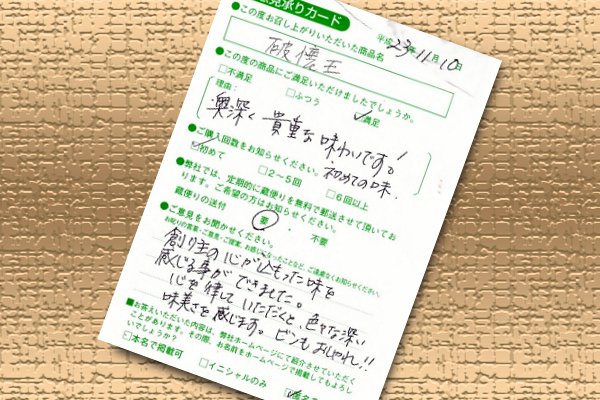 意見承りカード
平成23年11月10日
●この度お召し上がりいただいた商品名
破壊王
●この度の商品にご満足いただけましたでしょうか。
□不満足 □ふつう ☑満足
理由：
奥深く 貴重な味わいです。！
初めての味.
●ご購入回数をお知らせください。
☑初めて □２～５回 □６回以上
●弊社では、定期的に蔵便りを無料で郵送させて頂いてお
ります。ご希望の方はお知らせください。
蔵便りの送付 要 ・ 不要
●ご意見をお聞かせください。
お叱りの言葉・ご意見・ご提案、お感じになったことなど、ご遠慮なくお知らせください。
創り主の心が込もった味を
感じる事ができました。
心を律していただくと、色々な深い
味美さを感じます。ビンもおしゃれ!!
■お答えいただいた内容は、弊社ホームページにて紹介させていただく
ことがあります。その際、お名前をホームページで掲載してもよろし
いでしょうか？
□本名で掲載可 □イニシャルのみ